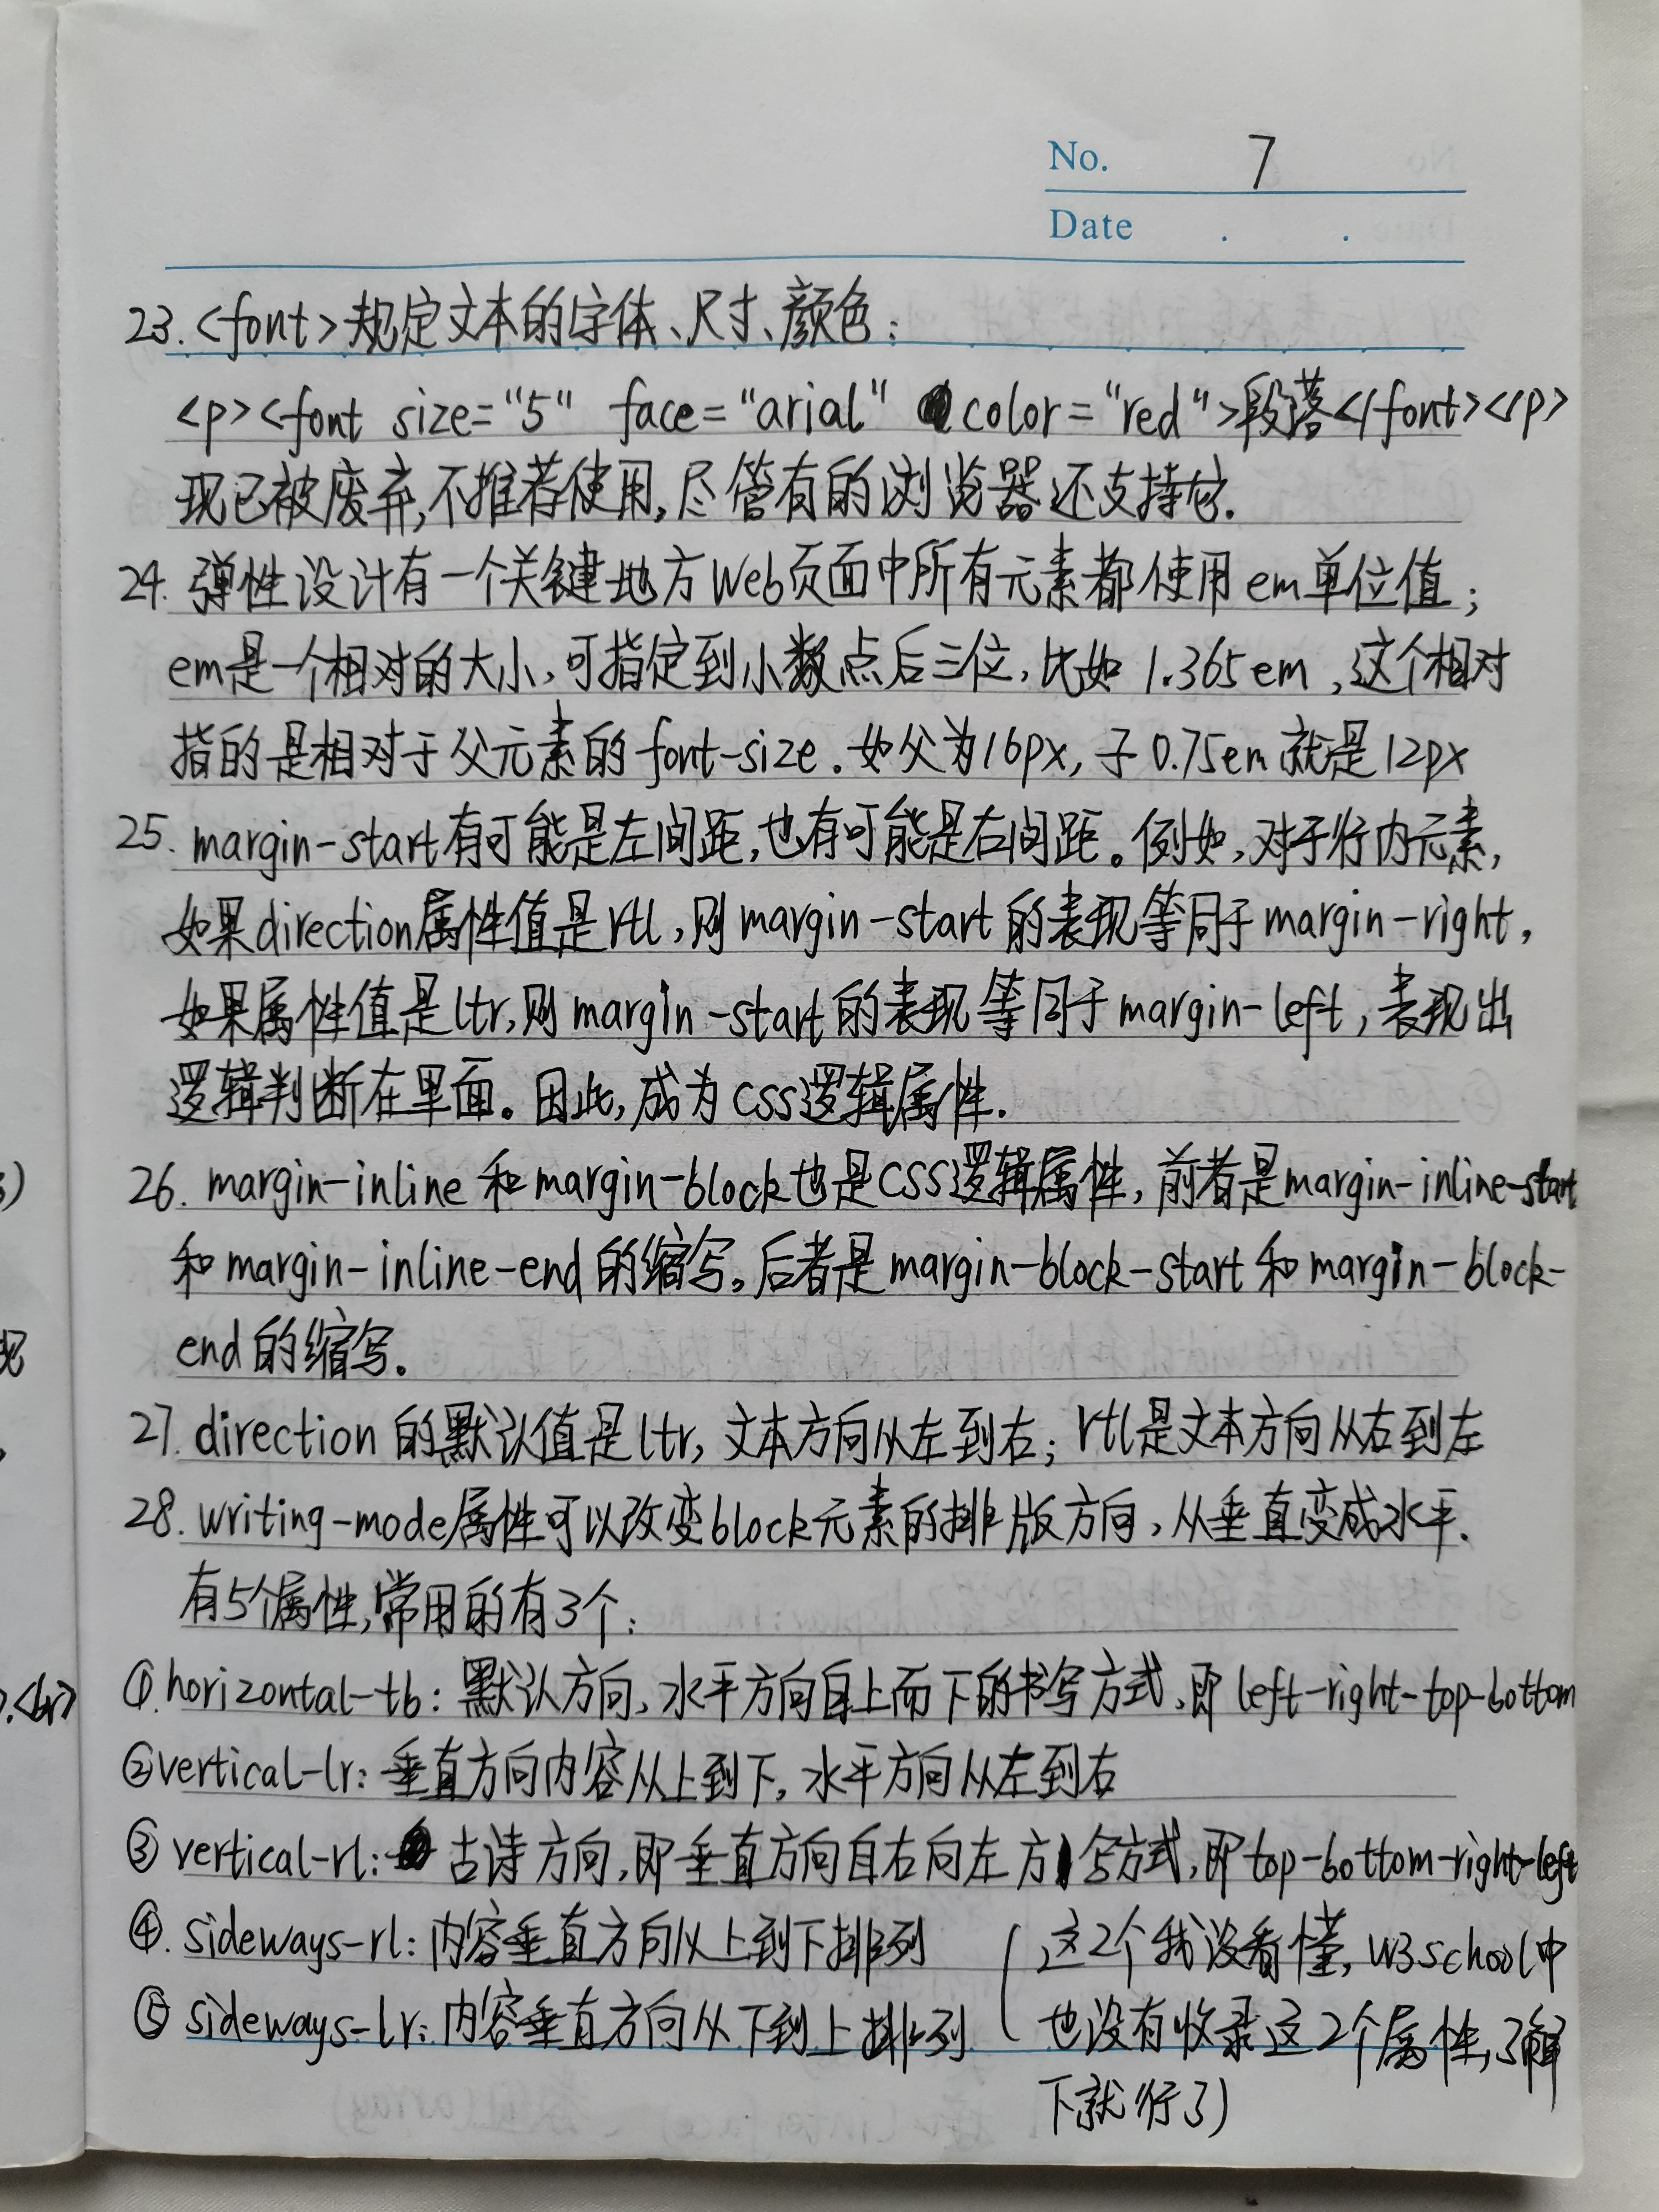 No. 7
Date . .
23.<font>规定文本的字体、尺寸、颜色:
<p><font size="5" face="arial" color="red">段落</font></p>
现已被废弃,不推荐使用,尽管有的浏览器还支持它.
24. 弹性设计有一个关键地方Web页面中所有元素都使用em单位值;
em是一个相对的大小,可指定到小数点后三位,比如 1.365em,这个相对
指的是相对于父元素的font-size.如父为16px,子0.75em就是12px
25. margin-start有可能是左间距,也有可能是右间距。例如,对于行内元素,
如果direction属性值是rtl,则margin-start的表现等同于margin-right,
如果属性值是ltr,则margin-start的表现等同于margin-left,表现出
逻辑判断在里面。因此,成为CSS逻辑属性.
26. margin-inline和margin-block也是CSS逻辑属性,前者是margin-inline-start
和margin-inline-end的缩写。后者是margin-block-start和margin-block-
end的缩写。
27. direction的默认值是ltr,文本方向从左到右;rtl是文本方向从右到左
28. writing-mode属性可以改变block元素的排版方向,从垂直变成水平.
有5个属性,常用的有3个:
①.horizontal-tb:默认方向,水平方向自上而下的书写方式,即left-right-top-bottom
②vertical-lr:垂直方向内容从上到下,水平方向从左到右
③vertical-rl:古诗方向,即垂直方向自右向左方写方式,即top-bottom-right-left
④.sideways-rl:内容垂直方向从上到下排列 (这2个我没看懂,W3School中
⑤sideways-lr:内容垂直方向从下到上排列 也没有收录这2个属性,了解
下就行了)
.<br>